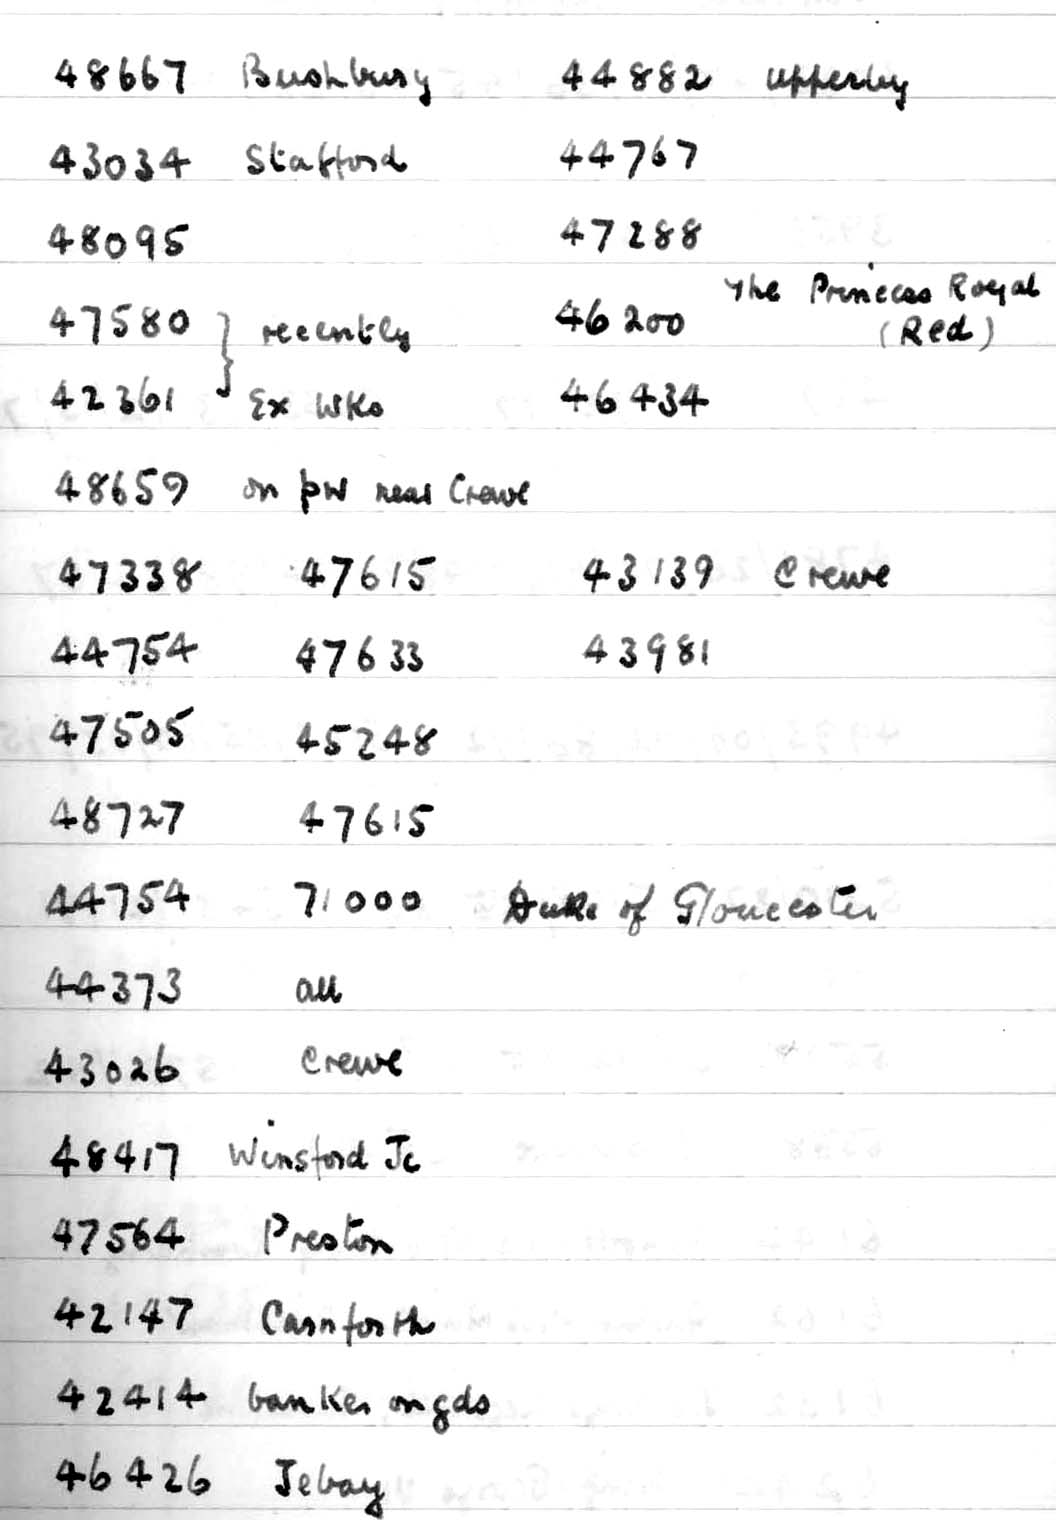 48667 Bushbury 44882 Upperby
43034 Stafford 44767
48095 47288
47580 } recently 46200 The Princess Royal (Red)
42361 Ex Wks 46434
48659 on pw near Crewe
47338 47615 43139 Crewe
44754 47633 43981
47505 45248
48727 47615
44754 71000 Duke of Gloucester
44373 all
43026 Crewe
48417 Winsford Jc
47564 Preston
42147 Carnforth
42414 banker on gds
46426 Tebay